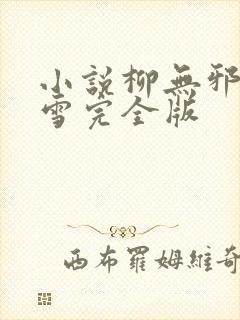 小說柳無邪
雪完全版
西布羅姆維奇